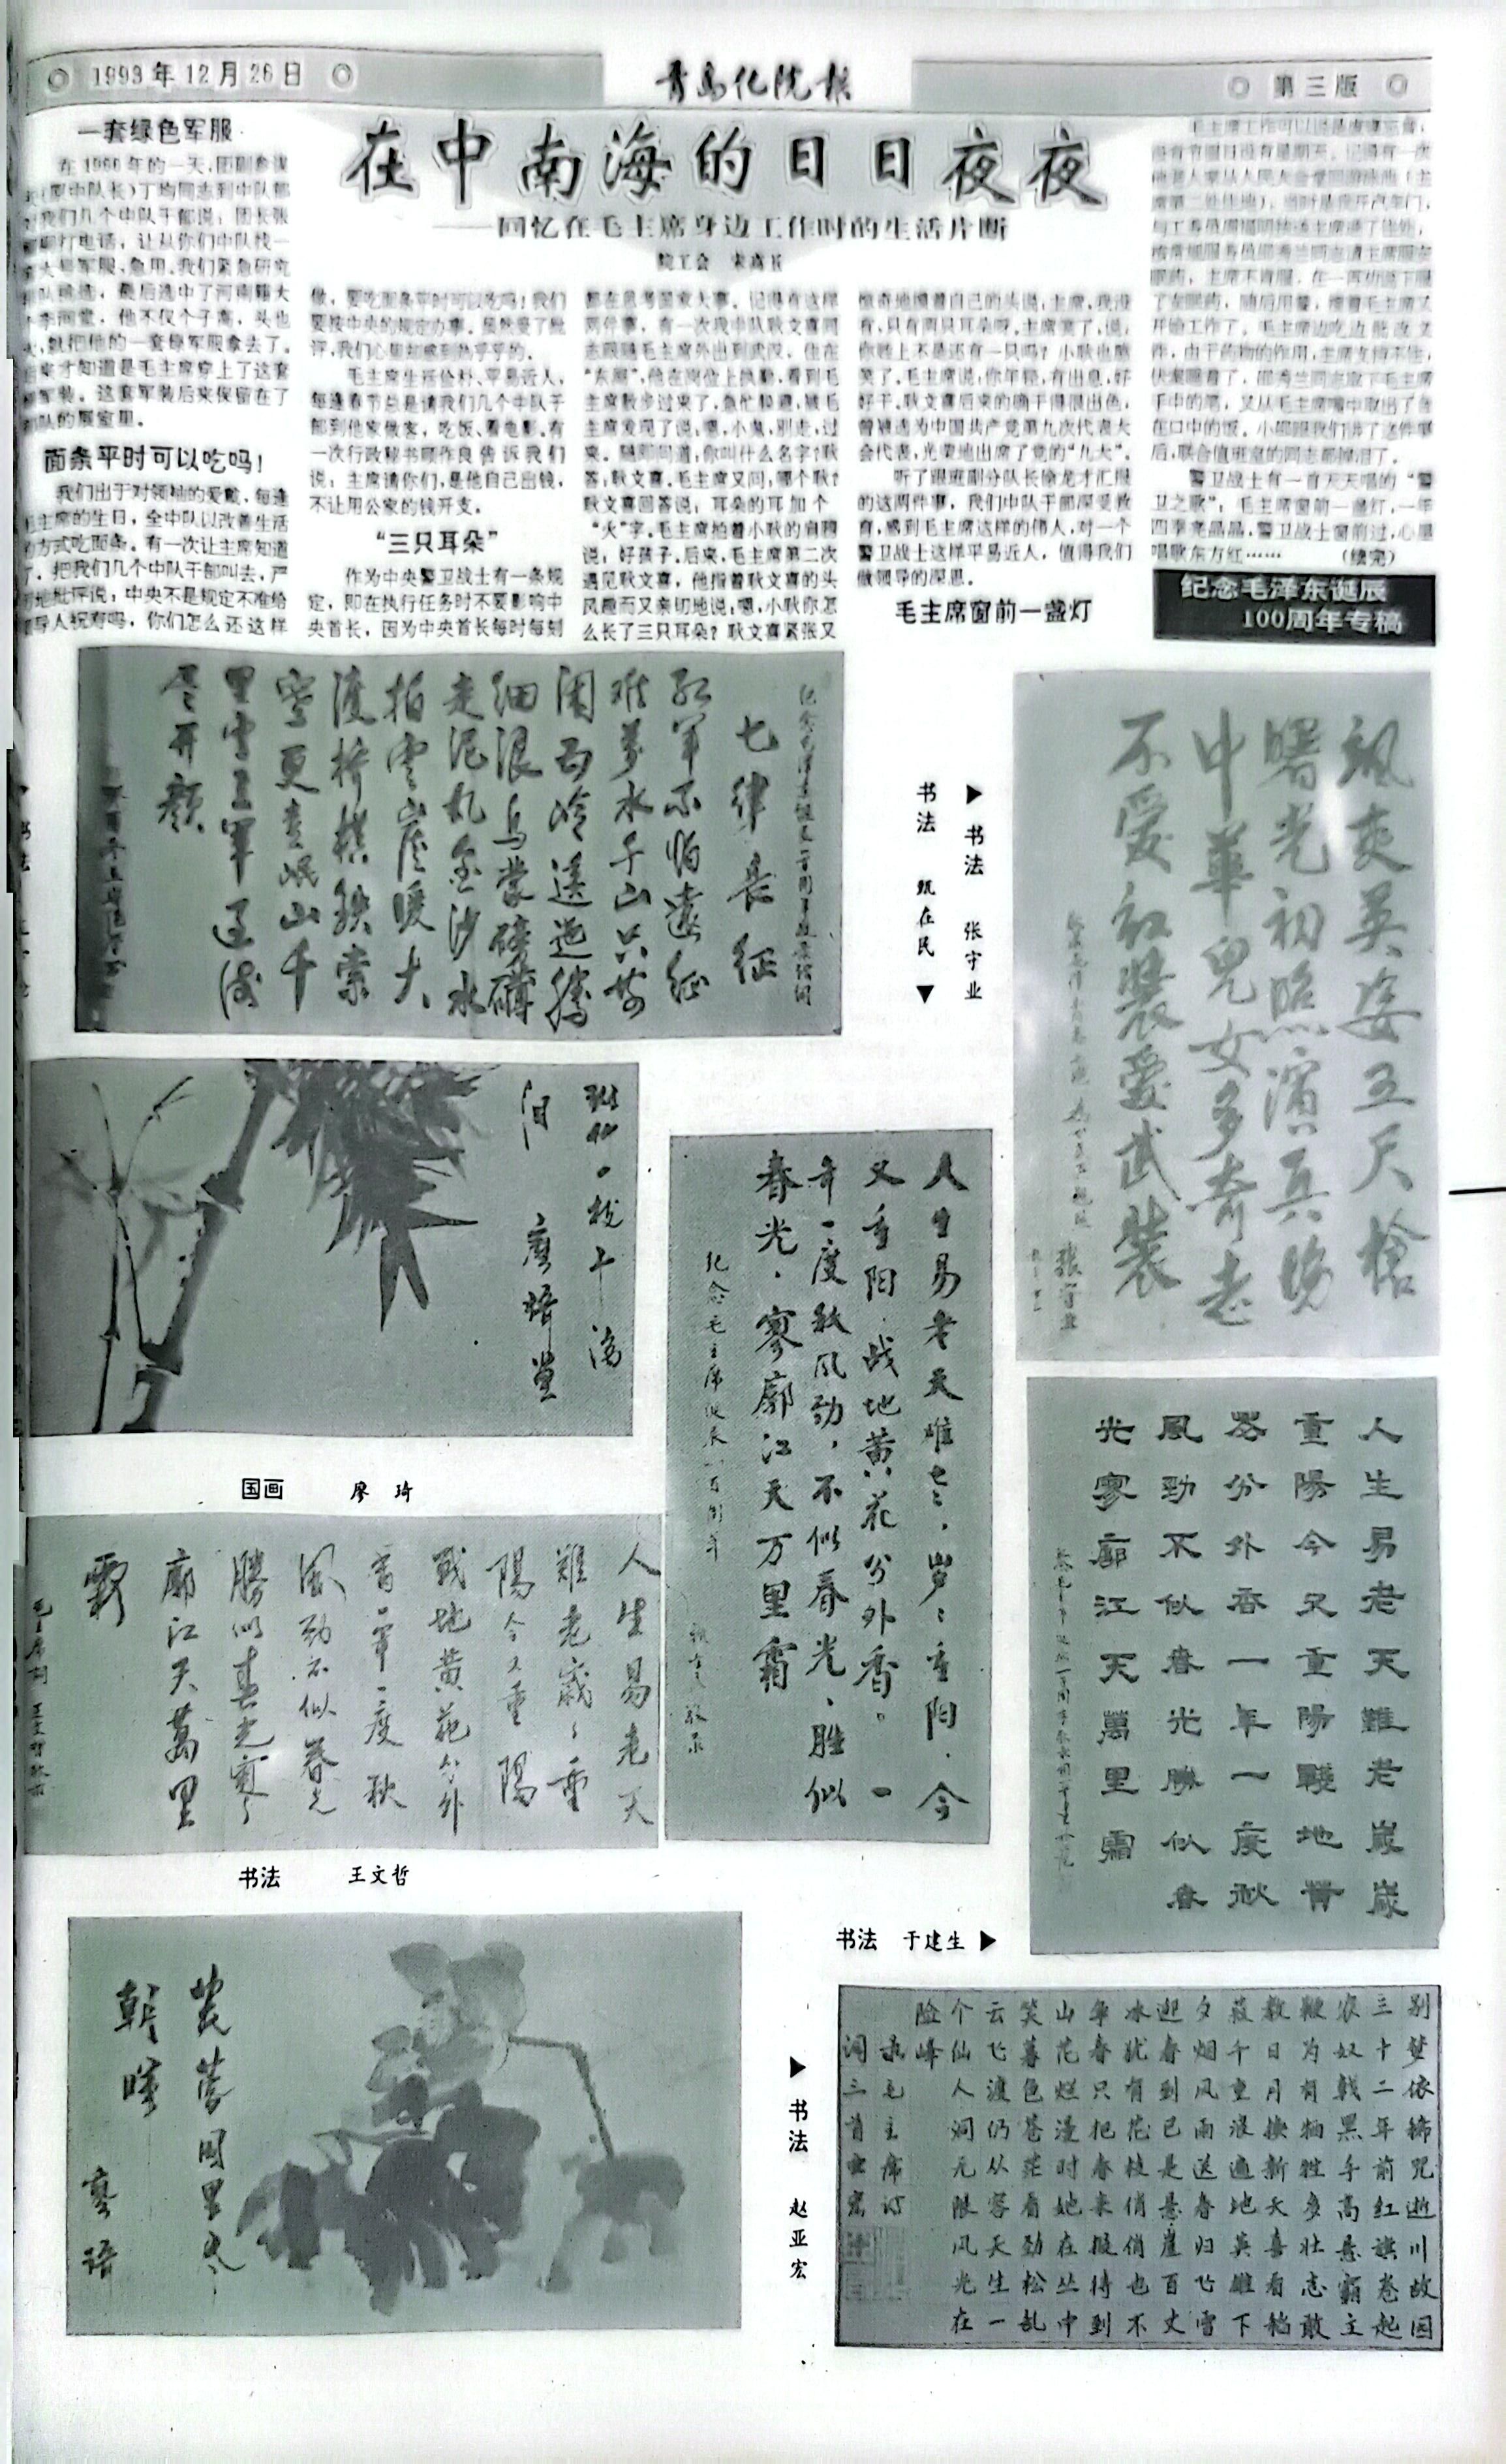 1993年12月26日
青岛化院报
第三版
在中南海的日日夜夜
——回忆在毛主席身边工作时的生活片断
院工会
一套绿色军服
在1966年的一天,
(原中队长)丁均同志到中队部
我们几个中队干部说:团长张
打电话,让从你们中队找一
大号军服,急用。我们紧急研究
最后选中了河南籍大
李同堂,他不仅个子高,头也
就把他的一套绿军服拿去了。
来才知道是毛主席穿上了这套
军装。这套军装后来保留在了
队的展室里。
面条平时可以吃吗!
我们出于对领袖的爱戴,每逢
毛主席的生日,全中队以改善生活
的方式吃面条。有一次让主席知道
了,把我们几个中队干部叫去,严
地批评说:中央不是规定不准给
导人祝寿吗,你们怎么还这样
做,要吃面条平时可以吃吗!我们
要按中央的规定办事。虽然受了批
评,我们心里却感到热乎乎的。
毛主席生活俭朴、平易近人,
每逢春节总是请我们几个中队干
部到他家做客,吃饭、看电影。有
一次行政秘书顾作良告诉我们
说:主席请你们,是他自己出钱,
不让用公家的钱开支。
“三只耳朵”
作为中央警卫战士有一条规
定,即在执行任务时不要影响中
央首长,因为中央首长每时每刻
都在思考国家大事。记得有这样
两件事,有一次我中队耿文喜同
志跟随毛主席外出到武汉,住在
“东湖”,他在岗位上执勤,看到毛
主席散步过来了,急忙躲避,被毛
主席发现了说:嗯,小鬼,别走,过
来。随即问道:你叫什么名字?耿
答:耿文喜。毛主席又问:哪个耿?
耿文喜回答说:耳朵的耳加个
“火”字。毛主席拍着小耿的肩膀
说:好孩子。后来,毛主席第二次
遇见耿文喜,他指着耿文喜的头
风趣而又亲切地说:嗯,小耿你怎
么长了三只耳朵?耿文喜紧张又
惊奇地摸着自己的头说:主席,我没
有,只有两只耳朵呀。主席笑了,说:
你姓上不是还有一只吗?小耿也憨
笑了。毛主席说:你年轻,有出息,好
好干。耿文喜后来的确干得很出色,
曾被选为中国共产党第九次代表大
会代表,光荣地出席了党的“九大”。
听了跟班副分队长徐龙才汇报
的这两件事,我们中队干部深受教
育,感到毛主席这样的伟人,对一个
警卫战士这样平易近人,值得我们
做领导的深思。
毛主席窗前一盏灯
没有节假日没有星期天。记得有一次
他老人家从人民大会堂回游泳池(主
席第二处住地),当时是我开汽车门,
眼药,主席不肯服,在一再劝说下服
了安眠药,随后用餐,接着毛主席又
开始工作了。毛主席边吃边批改文
件,由于药物的作用,主席支持不住,
伏案睡着了,邵秀兰同志取下毛主席
手中的笔,又从毛主席嘴中取出了含
在口中的饭。小邵跟我们讲了这件事
后,联合值班室的同志都掉泪了。
警卫战士有一首天天唱的“警
卫之歌”:毛主席窗前一盏灯,一年
四季亮晶晶,警卫战士窗前过,心里
唱歌东方红…… (续完)
纪念毛泽东诞辰
100周年专稿
七律 长征
红军不怕远征
难万水千山只等
闲五岭逶迤腾
细浪乌蒙磅礴
走泥丸金沙水
拍云崖暖大
渡桥横铁索
寒更喜岷山千
里雪三军过后
尽开颜
▶ 书法 张守业
书法 甄在民 ▼
飒爽英姿五尺枪
曙光初照演兵场
中華兒女多奇志
不爱红装爱武装
张守业
廖琦堂
国画 廖琦
人生易老天难老,岁岁重阳,今
又重阳,战地黄花分外香。一
年一度秋风劲,不似春光,胜似
春光,寥廓江天万里霜
纪念毛主席诞辰一百周年
人生易老天難老歲歲
重陽今又重陽戰地黄
花分外香一年一度秋
風勁不似春光勝似春
光寥廓江天萬里霜
人生易老天
難老歲歲重
陽今又重陽
戰地黄花分外
香一年一度秋
風勁不似春光
勝似春光寥
廓江天萬里
霜
书法 王文哲
书法 于建生 ▶
朝晖
▶ 书法 赵亚宏
别梦依稀咒逝川故园
三十二年前红旗卷起
农奴戟黑手高悬霸主
鞭为有牺牲多壮志敢
教日月换新天喜看稻
菽千重浪遍地英雄下
夕烟风雨送春归飞雪
迎春到已是悬崖百丈
冰犹有花枝俏俏也不
争春只把春来报待到
山花烂漫时她在丛中
笑暮色苍茫看劲松乱
云飞渡仍从容天生一
个仙人洞无限风光在
险峰
录毛主席诗
词三首